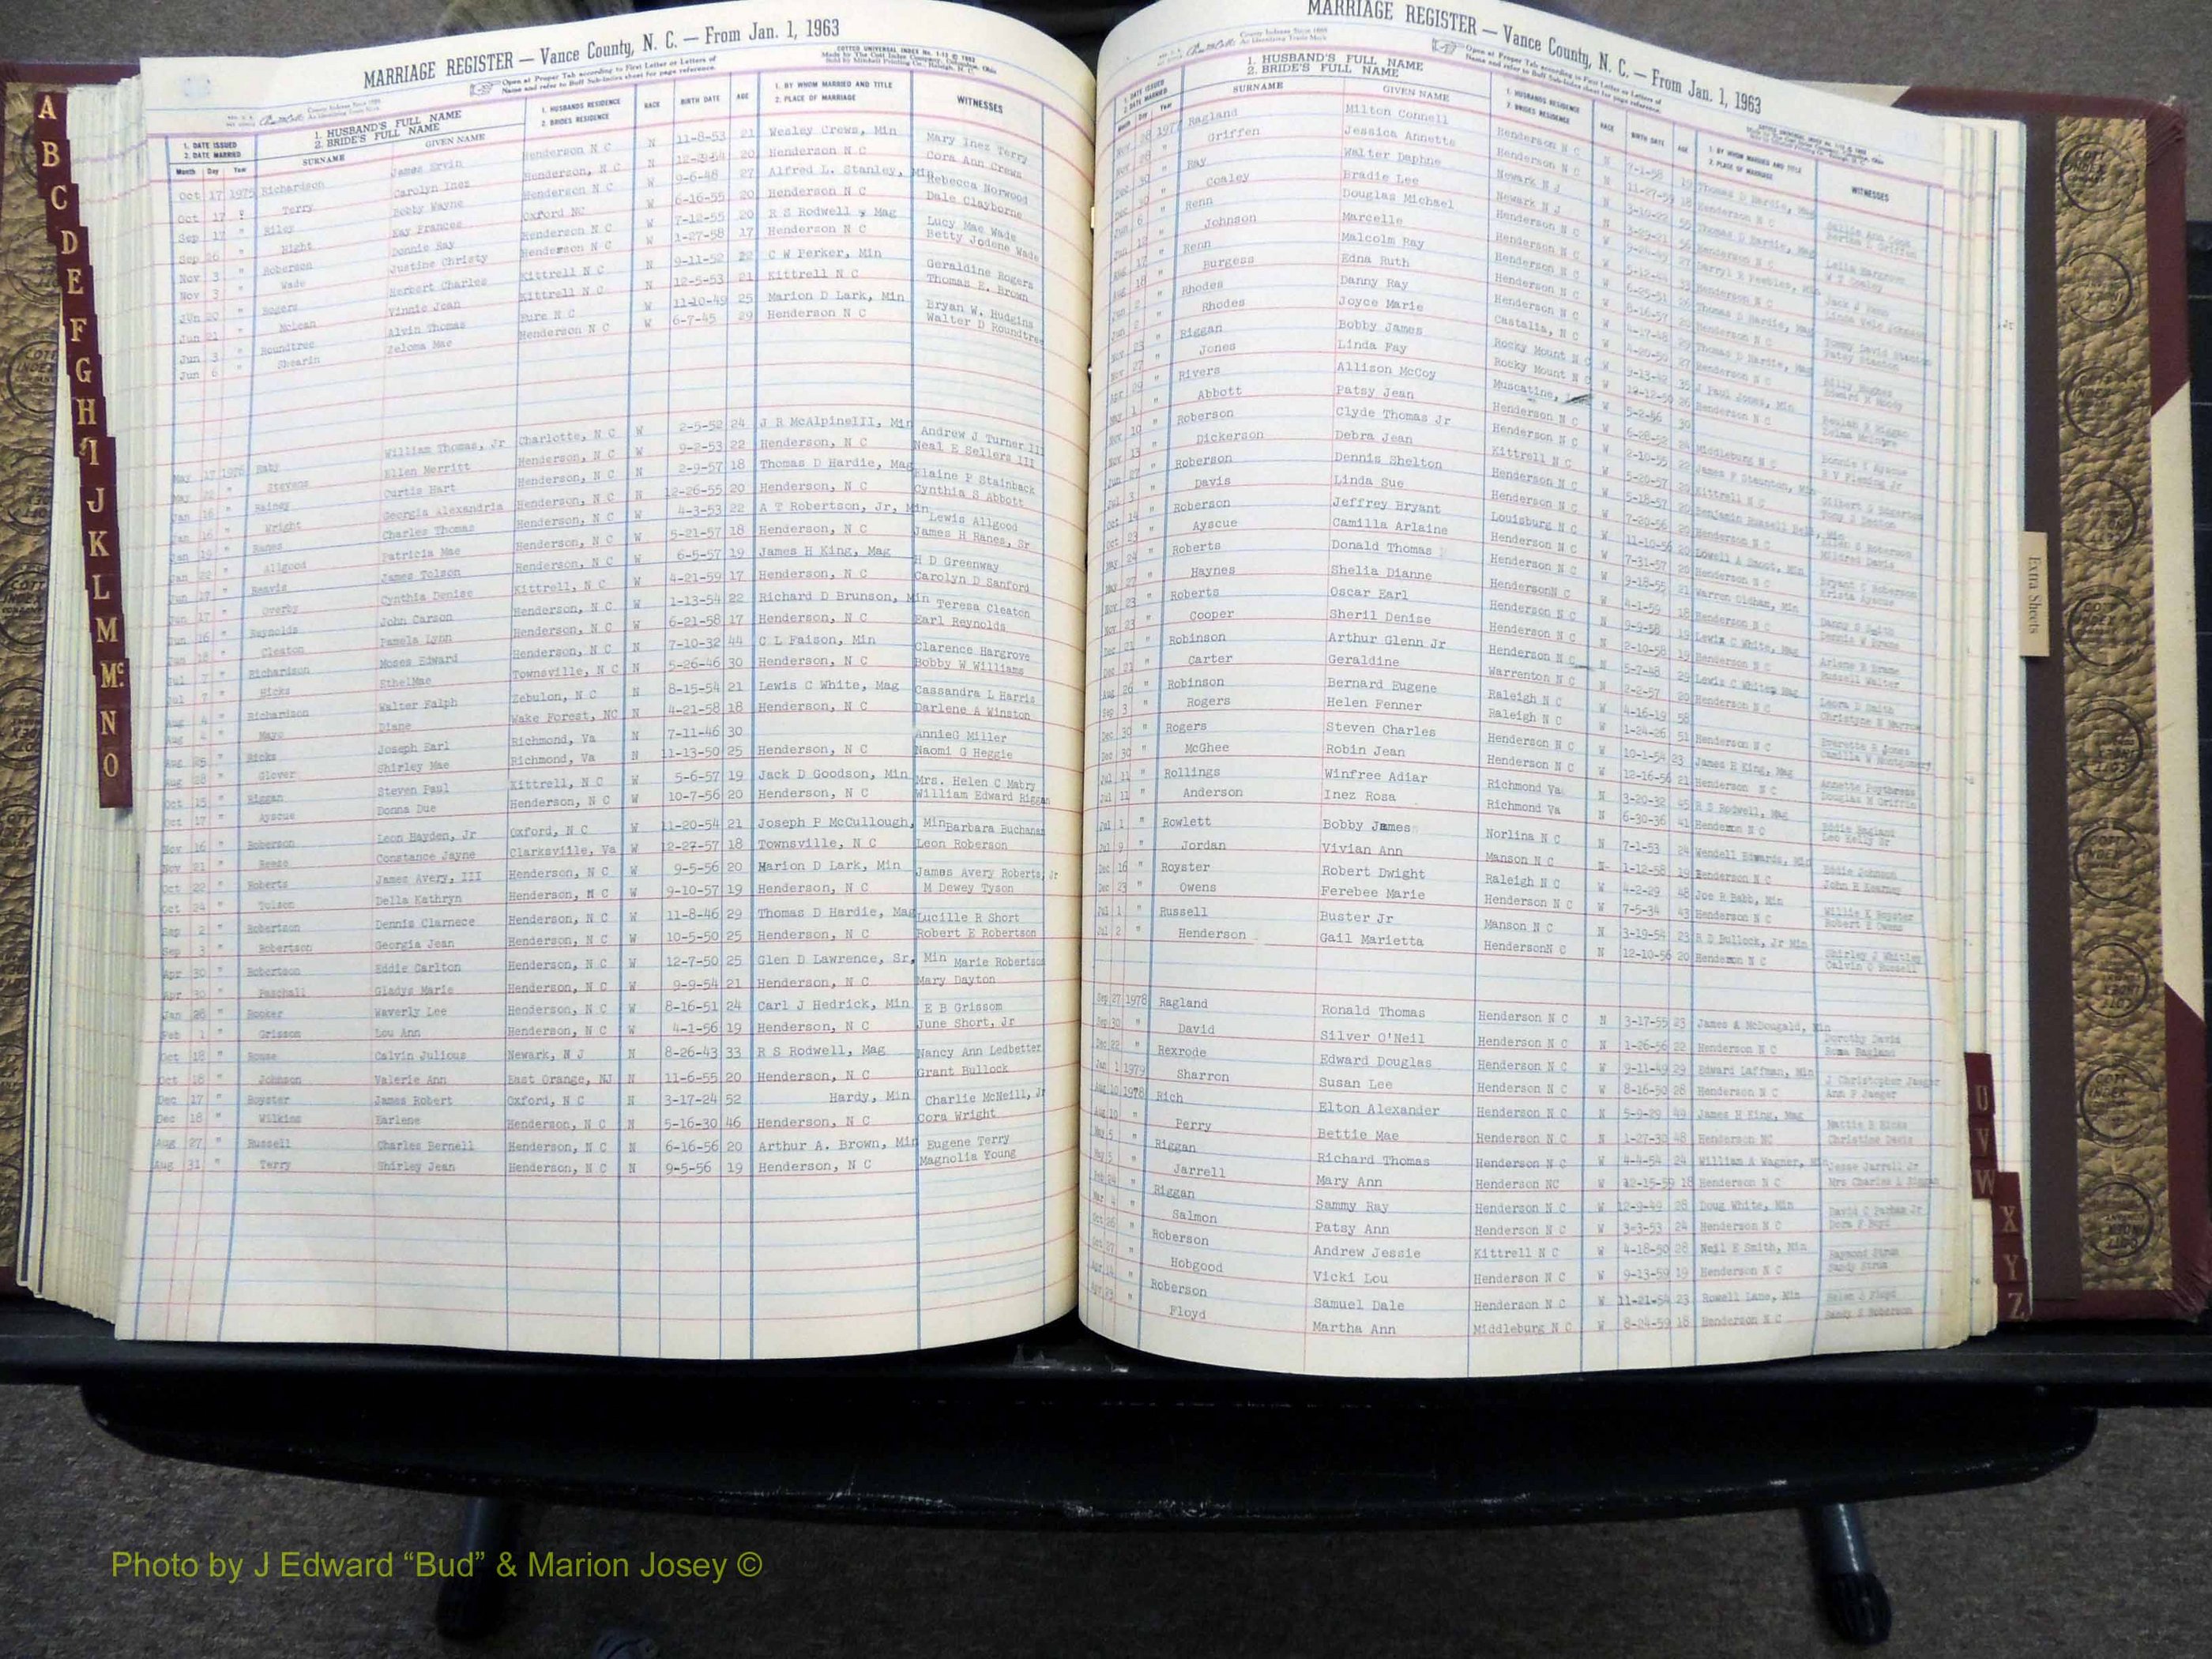 MARRIAGE REGISTER — Vance County, N. C. — From Jan. 1, 1963
Open at Proper Tab according to First Letter or Letters of
Name and refer to Buff Sub-Index sheet for page reference.
1. DATE ISSUED
2. DATE MARRIED
Month Day Year
1. HUSBAND'S FULL NAME
2. BRIDE'S FULL NAME
SURNAME GIVEN NAME
1. HUSBANDS RESIDENCE
2. BRIDES RESIDENCE
RACE BIRTH DATE AGE
1. BY WHOM MARRIED AND TITLE
2. PLACE OF MARRIAGE
WITNESSES
Oct 17 1975 Richardson James Ervin Henderson N C N 11-8-53 21 Wesley Crews, Min Mary Inez Terry
Oct 17 " Terry Carolyn Inez Henderson, N C N 20 Henderson N C Cora Ann Crews
Sep 17 " Riley Bobby Wayne Henderson N C W 9-6-48 27 Alfred L. Stanley, Min Rebecca Norwood
Sep 26 " Hight Kay Frances Oxford NC W 6-16-55 20 Henderson N C Dale Clayborne
Nov 3 " Roberson Donnie Ray Henderson N C W 7-12-55 20 R S Rodwell, Mag Lucy Mae Wade
Nov 3 " Wade Justine Christy Henderson N C W 1-27-58 17 Henderson N C Betty Jodene Wade
Jun 20 " Rogers Herbert Charles Kittrell N C N 9-11-52 22 C W Perker, Min Geraldine Rogers
Jun 21 " McLean Vinnie Joan Kittrell N C N 12-5-53 21 Kittrell N C Thomas E. Brown
Jun 3 " Roundtree Alvin Thomas Eure N C W 11-10-49 25 Marion D Lark, Min Bryan W. Hudgins
Jun 6 " Shearin Zeloma Mae Henderson N C W 6-7-45 29 Henderson N C Walter D Roundtree
May 17 1976 Raby William Thomas, Jr Charlotte, N C W 2-5-52 24 J R McAlpineIII, Min Andrew J Turner III
May 22 " Stevens Ellen Merritt Henderson, N C W 9-2-53 22 Henderson, N C Neal E Sellers III
Jan 16 " Rainey Curtis Hart Henderson, N C N 2-9-57 18 Thomas D Hardie, Mag Elaine P Stainback
Jan 16 " Wright Georgia Alexandria Henderson, N C N 12-26-55 20 Henderson, N C Cynthia S Abbott
Jan 19 " Ranes Charles Thomas Henderson, N C W 4-3-53 22 A T Robertson, Jr, Min Lewis Allgood
Jan 22 " Allgood Patricia Mae Henderson, N C W 5-21-57 18 Henderson, N C James H Ranes, Sr
Jun 17 " Reavis James Tolson Henderson, N C W 6-5-57 19 James H King, Mag H D Greenway
Jun 17 " Overby Cynthia Denise Kittrell, N C W 4-21-59 17 Henderson, N C Carolyn D Sanford
Jun 16 " Reynolds John Carson Henderson, N C W 1-13-54 22 Richard D Brunson, Min Teresa Cleaton
Jun 18 " Cleaton Pamela Lynn Henderson, N C W 6-21-58 17 Henderson, N C Earl Reynolds
Jul 7 " Richardson Moses Edward Henderson, N C N 7-10-32 44 C L Faison, Min Clarence Hargrove
Jul 7 " Hicks EthelMae Townsville, N C N 5-26-46 30 Henderson, N C Bobby W Williams
Aug 4 " Richardson Walter Ralph Zebulon, N C N 8-15-54 21 Lewis C White, Mag Cassandra L Harris
Aug 4 " Mayo Diane Wake Forest, NC N 4-21-58 18 Henderson, N C Darlene A Winston
Aug 25 " Ricks Joseph Earl Richmond, Va N 7-11-46 30 AnnieG Miller
Aug 28 " Glover Shirley Mae Richmond, Va N 11-13-50 25 Henderson, N C Naomi G Heggie
Oct 15 " Riggan Steven Paul Kittrell, N C W 5-6-57 19 Jack D Goodson, Min Mrs. Helen C Mabry
Oct 17 " Ayscue Donna Due Henderson, N C W 10-7-56 20 Henderson, N C William Edward Riggan
Nov 16 " Roberson Leon Hayden, Jr Oxford, N C W 11-20-54 21 Joseph P McCullough, Min Barbara Buchanan
Nov 21 " Reese Constance Jayne Clarksville, Va W 12-27-57 18 Townsville, N C Leon Roberson
Oct 22 " Roberts James Avery, III Henderson, N C W 9-5-56 20 Marion D Lark, Min James Avery Roberts, Jr
Oct 24 " Tolson Della Kathryn Henderson, N C W 9-10-57 19 Henderson, N C M Dewey Tyson
Sep 2 " Robertson Dennis Clarnece Henderson, N C W 11-8-46 29 Thomas D Hardie, Mag Lucille R Short
Sep 3 " Robertson Georgia Jean Henderson, N C W 10-5-50 25 Henderson, N C Robert E Robertson
Apr 30 " Robertson Eddie Carlton Henderson, N C W 12-7-50 25 Glen D Lawrence, Sr, Min Marie Robertson
Apr 30 " Paschall Gladys Marie Henderson, N C W 9-9-54 21 Henderson, N C Mary Dayton
Jan 28 " Rooker Waverly Lee Henderson, N C W 8-16-51 24 Carl J Hedrick, Min E B Grissom
Feb 1 " Grissom Lou Ann Henderson, N C W 4-1-56 19 Henderson, N C June Short, Jr
Oct 18 " Rouse Calvin Julious Newark, N J N 8-26-43 33 R S Rodwell, Mag Nancy Ann Ledbetter
Oct 18 " Johnson Valerie Ann East Orange, NJ N 11-6-55 20 Henderson, N C Grant Bullock
Dec 17 " Royster James Robert Oxford, N C N 3-17-24 52 Hardy, Min Charlie McNeill, Jr
Dec 18 " Wilkins Earlene Henderson, N C N 5-16-30 46 Henderson, N C Cora Wright
Aug 27 " Russell Charles Bernell Henderson, N C N 6-16-56 20 Arthur A. Brown, Min Eugene Terry
Aug 31 " Terry Shirley Jean Henderson, N C N 9-5-56 19 Henderson, N C Magnolia Young
MARRIAGE REGISTER — Vance County, N. C. — From Jan. 1, 1963
Open at Proper Tab according to First Letter or Letters of
Name and refer to Buff Sub-Index sheet for page reference.
1. DATE ISSUED
2. DATE MARRIED
Month Day Year
1. HUSBAND'S FULL NAME
2. BRIDE'S FULL NAME
SURNAME GIVEN NAME
1. HUSBANDS RESIDENCE
2. BRIDES RESIDENCE
RACE BIRTH DATE AGE
1. BY WHOM MARRIED AND TITLE
2. PLACE OF MARRIAGE
WITNESSES
1977 Ragland Milton Connell Henderson N C N 7-1-58 19 Thomas D Hardie, Mag
Griffen Jessica Annette Henderson N C N 11-27-59 18 Henderson N C
Ray Walter Daphne Newark N J N 3-10-22 55 Thomas D Hardie, Mag
Coaley Bradie Lee Newark N J N 3-29-21 56 Henderson N C
Renn Douglas Michael Henderson N C W 9-24-49 27 Darryl R Peebles, Min
Johnson Marcelle Henderson N C W 5-12-44 Henderson N C
Renn Malcolm Ray Henderson N C W 6-25-51 26 Thomas D Hardie, Mag
Burgess Edna Ruth Henderson N C W 8-16-57 20 Henderson N C
Rhodes Danny Ray Henderson N C W 4-17-48 29 Thomas D Hardie, Mag
Rhodes Joyce Marie Castalia, N C W 4-20-50 27 Henderson N C
Riggan Bobby James Rocky Mount N C W 9-13-42 35 J Paul Jones, Min
Jones Linda Fay Rocky Mount N C W 12-12-50 26 Henderson N C
Rivers Allison McCoy Muscatine, W 5-2-46 30
Abbott Patsy Jean Henderson N C W 6-28-52 24 Middleburg N C
Roberson Clyde Thomas Jr Henderson N C W 2-10-55 22 James F Staunton, Min
Dickerson Debra Jean Kittrell N C W 5-20-57 20 Kittrell N C
Roberson Dennis Shelton Henderson N C W 5-18-57 20 Benjamin Russell
Davis Linda Sue Henderson N C W 7-20-56 20 Henderson N C
Roberson Jeffrey Bryant Louisburg N C W 11-10-56 20
Ayscue Camilla Arlaine Henderson N C W 7-31-57 20 Henderson N C
Roberts Donald Thomas Henderson N C W 9-18-55 21 Warren Oldham, Min
Haynes Shelia Dianne HendersonN C W 4-1-59 18 Henderson N C
Roberts Oscar Earl Henderson N C N 9-9-58 19 Lewix C White, Mag
Cooper Sheril Denise Henderson N C N 2-10-58 19 Henderson N C
Robinson Arthur Glenn Jr Henderson N C N 5-7-48 29 Lewis C White, Mag
Carter Geraldine Warrenton N C N 2-2-57 20 Henderson N C
Robinson Bernard Eugene Raleigh N C W 4-16-19 58
Rogers Helen Fenner Raleigh N C W 1-24-26 51 Henderson N C
Rogers Steven Charles Henderson N C W 10-1-54 23 James E King, Mag
McGhee Robin Jean Henderson N C W 12-16-56 21 Henderson N C
Rollings Winfree Adiar Richmond Va N 3-20-32 45 R S Rodwell, Mag
Anderson Inez Rosa Richmond Va N 6-30-36 41 Henderson N C
Rowlett Bobby James Norlina N C N 7-1-53 24 Wendell Edwards, Min
Jordan Vivian Ann Manson N C N 1-12-58 19 Henderson N C
Royster Robert Dwight Raleigh N C W 4-2-29 48 Joe R Babb, Min
Owens Ferebee Marie Henderson N C W 7-5-34 43 Henderson N C
Russell Buster Jr Manson N C N 3-19-54 23 R D Bullock, Jr Min Shirley J Whitley
Henderson Gail Marietta HendersonN C N 12-10-56 20 Henderson N C Calvin O Russell
Sep 27 1978 Ragland Ronald Thomas Henderson N C N 3-17-55 23 James A McDougald, Min Dorothy David
Sep 30 " David Silver O'Neil Henderson N C N 1-26-56 22 Henderson N C Roma Ragland
Dec 22 " Rexrode Edward Douglas Henderson N C W 9-11-49 29 Edward Laffman, Min J Christopher Jaeger
Jan 1 1979 Sharron Susan Lee Henderson N C W 8-16-50 28 Henderson N C Ann P Jaeger
Aug 10 1978 Rich Elton Alexander Henderson N C N 5-9-29 49 James H King, Mag
Aug 10 " Perry Bettie Mae Henderson N C N 1-27-30 48 Henderson NC Christine Davis
May 5 " Riggan Richard Thomas Henderson N C W 4-4-54 24 William A Wagner, Min Jesse Jarrell Jr
May 5 " Jarrell Mary Ann Henderson NC W 12-15-59 18 Henderson N C Mrs Charles L Riggan
Feb 24 " Riggan Sammy Ray Henderson N C W 12-9-49 28 Doug White, Min David C Parham Jr
Mar 4 " Salmon Patsy Ann Henderson N C W 3-3-53 24 Henderson N C
Oct 26 " Roberson Andrew Jessie Kittrell N C W 4-18-50 28 Neil E Smith, Min
Oct 27 " Hobgood Vicki Lou Henderson N C W 9-13-59 19 Henderson N C
Apr 14 " Roberson Samuel Dale Henderson N C W 11-21-54 23 Rowell Lane, Min Helen J Floyd
Apr 23 " Floyd Martha Ann Middleburg N C W 8-24-59 18 Henderson N C Randy S Roberson
A
B
C
D
E
F
G
H
I
J
K
L
M
Mc
N
O
Extra Sheets
U
V
W
X
Y
Z
Photo by J Edward “Bud” & Marion Josey ©